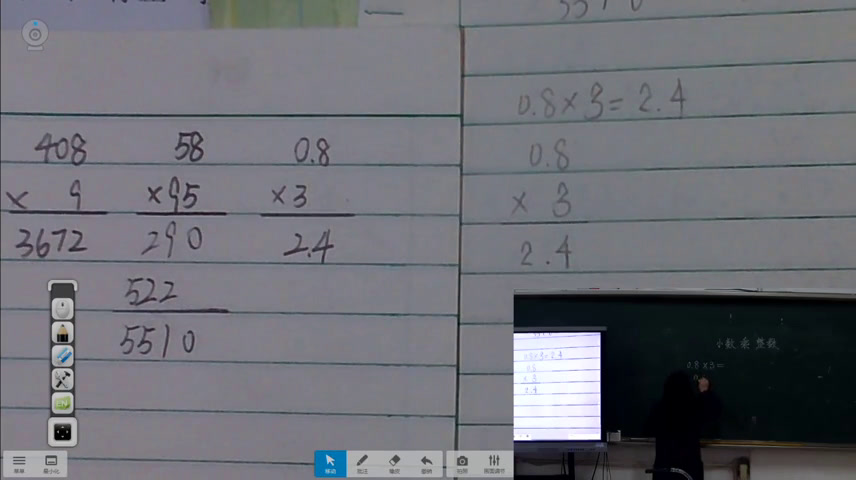 408
× 9
3672
58
×95
290
522
5510
0.8
×3
2.4
0.8×3=2.4
0.8
× 3
2.4
小数乘整数
0.8×3=
0.8×3=2.4
0.8
× 3
2.4
菜单
最小化
移动
批注
橡皮
撤销
拍照
画面调节